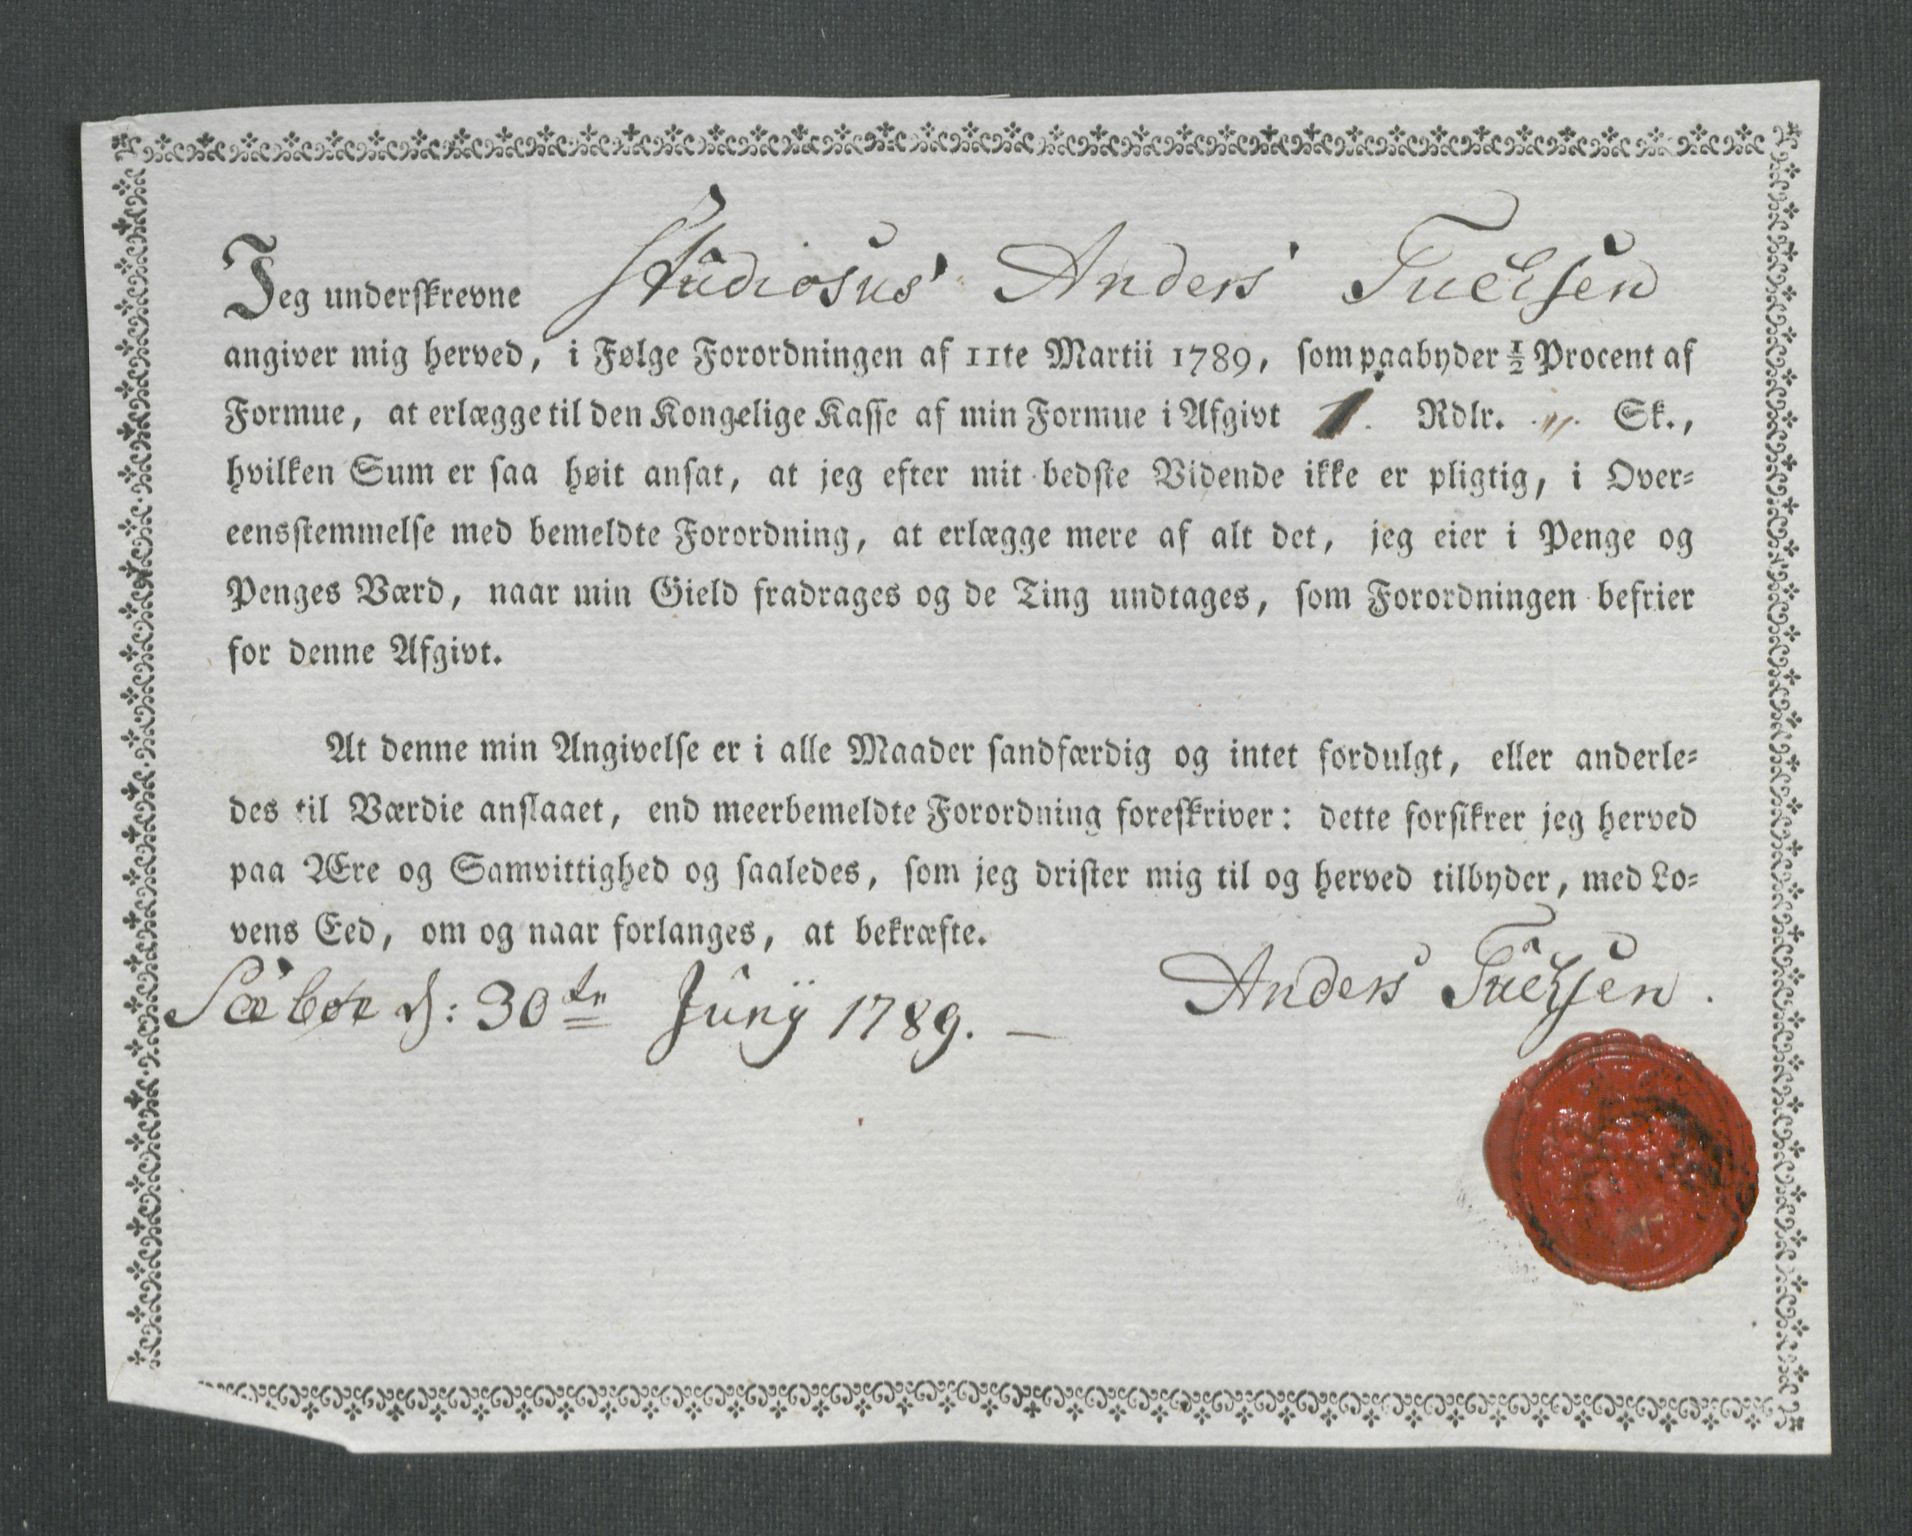 Jeg underskrevne Studiosus Anders Tuchsen
angiver mig herved, i Følge Forordningen af 11te Martii 1789, som paabyder ½ Procent af
Formue, at erlægge til den Kongelige Kasse af min Formue i Afgivt 1. Rdlr. „ Sk.,
hvilken Sum er saa høit ansat, at jeg efter mit bedste Vidende ikke er pligtig, i Over-
eensstemmelse med bemeldte Forordning, at erlægge mere af alt det, jeg eier i Penge og
Penges Værd, naar min Gield fradrages og de Ting undtages, som Forordningen befrier
for denne Afgivt.
At denne min Angivelse er i alle Maader sandfærdig og intet fordulgt, eller anderle-
des til Værdie anslaaet, end meerbemeldte Forordning foreskriver: dette forsikrer jeg herved
paa Ære og Samvittighed og saaledes, som jeg drister mig til og herved tilbyder, med Lo-
vens Eed, om og naar forlanges, at bekræfte.
Sæbøe d: 30te Junÿ 1789. — Anders Tuchsen.